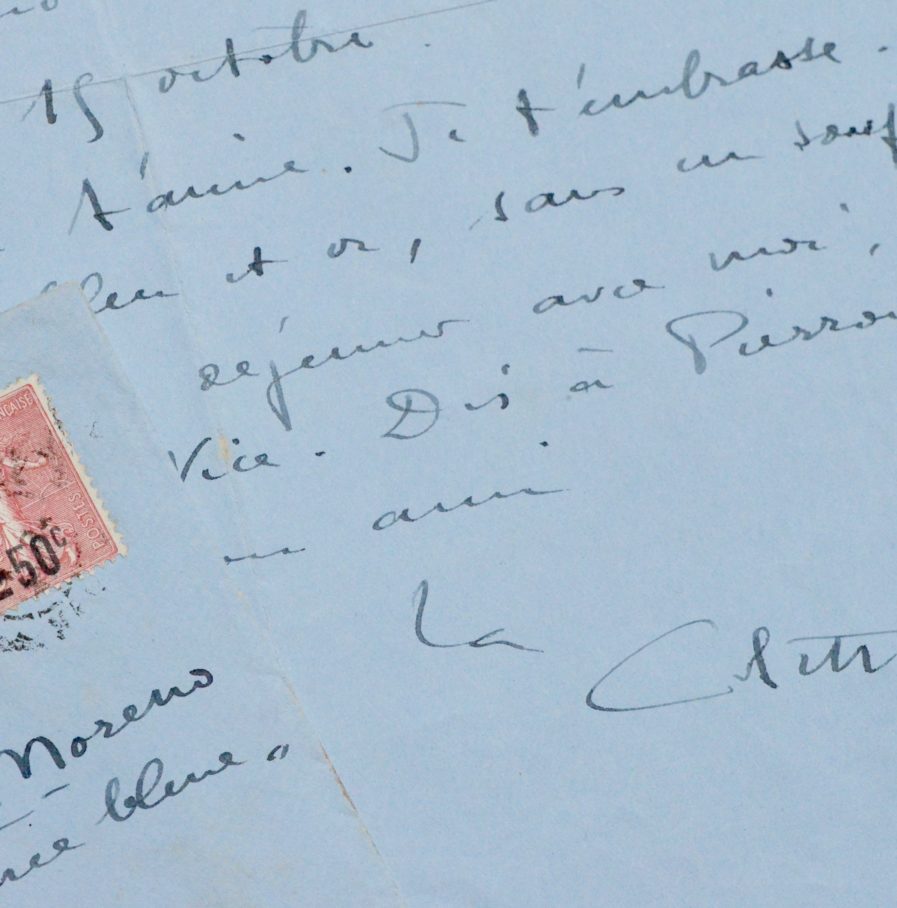 15 octobre.
t'aime. Je t'embrasse.
bleu et or, sans un souf
déjeuner avec moi,
vice. Dis à Pierro
un ami
La
Colett
NÇAISE
POSTES
=50c
Moreno
bleue"